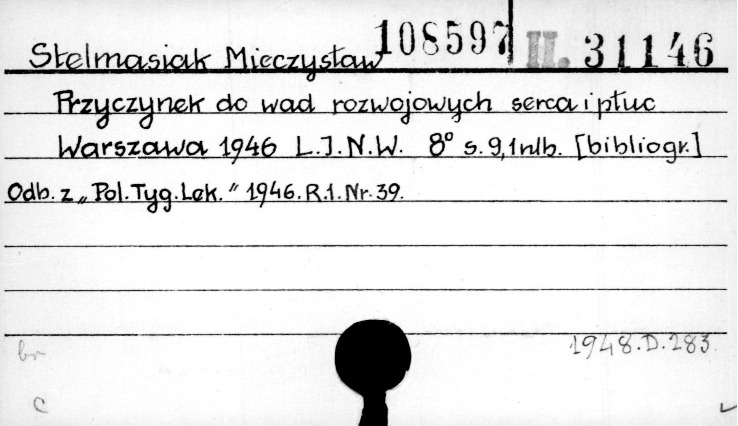 Stelmasiak Mieczysław 108597 II. 31146
Przyczynek do wad rozwojowych serca i płuc
Warszawa 1946 L.I.N.W. 8° s. 9, 1 nlb. [bibliogr.]
Odb. z „Pol. Tyg. Lek.” 1946. R.1. Nr. 39.
br 1948.D.283
c